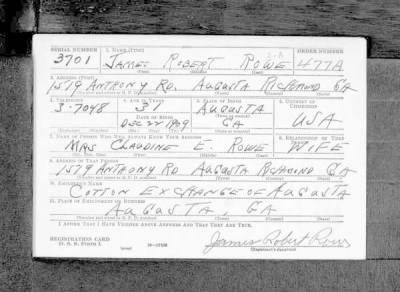 SERIAL NUMBER 1. NAME (Print) ORDER NUMBER
3701 JAMES ROBERT ROWE 477A
(First) (Middle) (Last)
2. ADDRESS (Print)
1579 ANTHONY RD. AUGUSTA RICHMOND GA
3. TELEPHONE 4. AGE IN YEARS 5. PLACE OF BIRTH 6. COUNTRY OF CITIZENSHIP
3-7048 31 AUGUSTA
DATE OF BIRTH
DEC 22 1909 GA USA
7. NAME OF PERSON WHO WILL ALWAYS KNOW YOUR ADDRESS 8. RELATIONSHIP OF THAT PERSON
MRS CLAUDINE E. ROWE WIFE
9. ADDRESS OF THAT PERSON
1579 ANTHONY RD AUGUSTA RICHMOND GA
10. EMPLOYER'S NAME
COTTON EXCHANGE OF AUGUSTA
11. PLACE OF EMPLOYMENT OR BUSINESS
AUGUSTA, GA
I AFFIRM THAT I HAVE VERIFIED ABOVE ANSWERS AND THAT THEY ARE TRUE.
REGISTRATION CARD
D. S. S. Form 1 James Robert Rowe
(Registrant's signature)